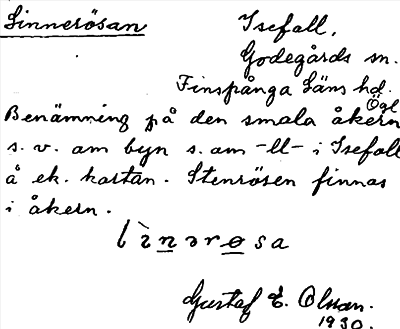 Linnerösan
Isefall,
Godegårds sn.
Finspånga Läns hd.
Ögl
Benämning på den smala åkern
s.v. om byn s.om -ll- i Isefall
å ek. kartan. Stenrösen finnas
i åkern.
lìnərøsa
Gustaf E. Olsson.
1930.